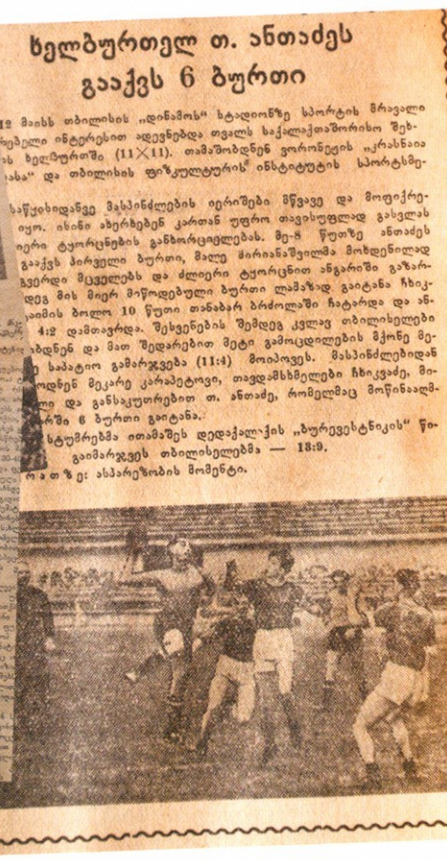 ხელბურთელ თ. ანთაძეს
გააქვს 6 ბურთი
12 მაისს თბილისის „დინამოს“ სტადიონზე სპორტის მრავალი
რებელი ინტერესით ადევნებდა თვალს საქალაქთაშორისო შეხ-
ას ხელბურთში (11×11). თამაშობდნენ ვორონეჟის „კრასნაია
ასა“ და თბილისის ფიზკულტურის ინსტიტუტის სპორტსმე-
საწყისიდანვე მასპინძლების იერიშები მწვავე და მოფიქრე-
იყო. ისინი ახერხებენ კართან უფრო თავისუფლად გასვლას
იერი ტყორცნების განხორციელებას. მე-8 წუთზე ანთაძეს
გააქვს პირველი ბურთი, მალე მოხდენილად
გვერდი მცველებს და ძლიერი ტყორცნით ანგარიში გაზარ-
დეგ მის მიერ მოწოდებული ბურთი ლამაზად გაიტანა ჩხიკ-
აიმის ბოლო 10 წუთი თანაბარ ბრძოლაში ჩატარდა და ან-
4:2 დამთავრდა. შესვენების შემდეგ კვლავ თბილისელები
ობდნენ და მათ შედარებით მეტი გამოცდილების მქონე მე-
ე საპატიო გამარჯვება (11:4) მოიპოვეს. მასპინძლებიდან
ოდნენ მეკარე კარაპეტოვი, თავდამსხმელები ჩხიკვაძე, მი-
ლი და განსაკუთრებით თ. ანთაძე, რომელმაც მოწინააღმ-
არში 6 ბურთი გაიტანა.
სტუმრებმა ითამაშეს დედაქალაქის „ბურევესტნიკის“ წი-
გაიმარჯვეს თბილისელებმა — 18:9.
რათზე: ასპარეზობის მომენტი.